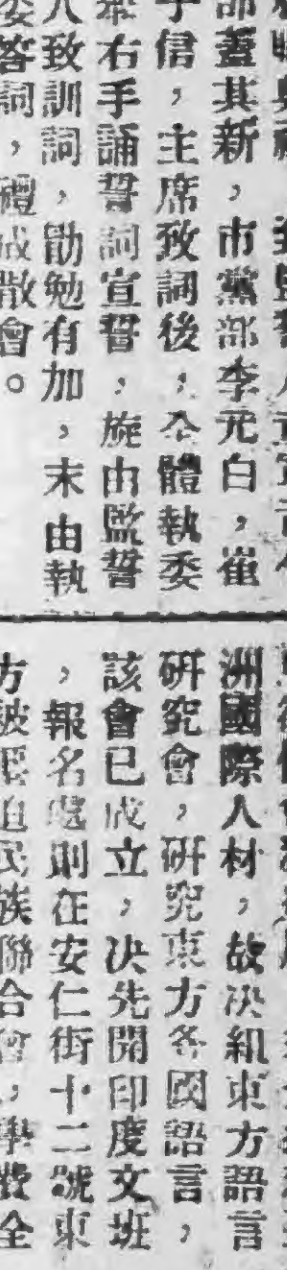 部蓋其新，市黨部李元白，崔
子信，主席致詞後，全體執委
舉右手誦誓詞宣誓，旋由監誓
人致訓詞，勖勉有加，末由執
委答詞，禮成散會。
洲國際人材，故决組東方語言
研究會，研究東方各國語言，
該會已成立，决先開印度文班
，報名處則在安仁街十二號東
方被壓迫民族聯合會，學費全